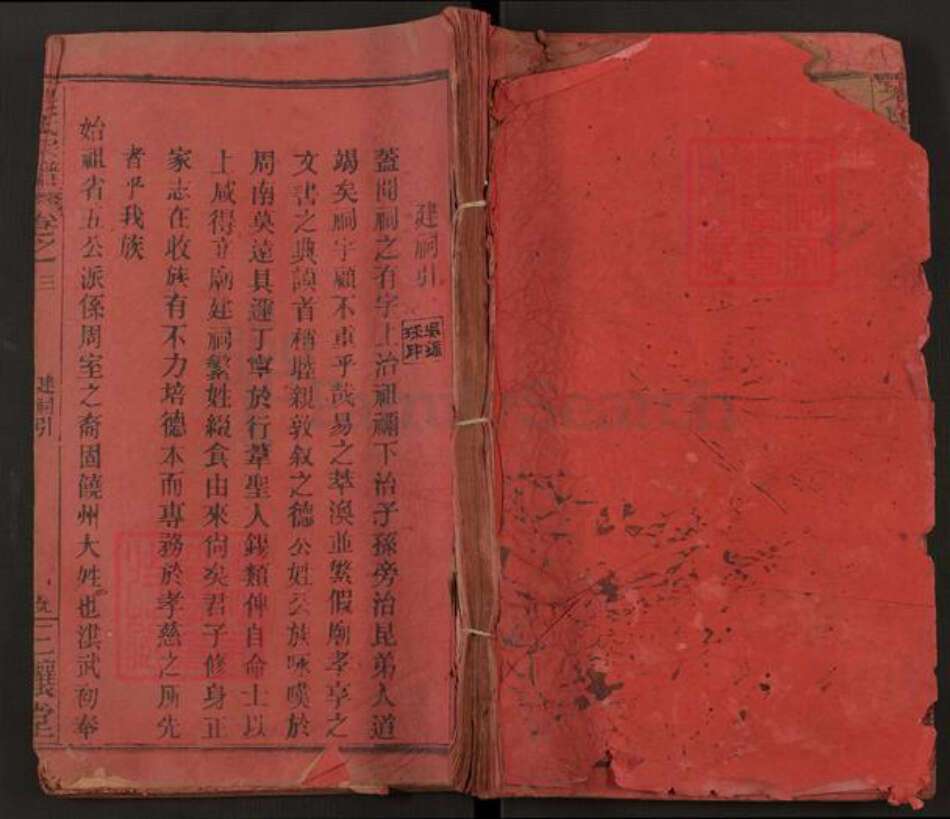 建祠引
蓋聞祠之有字上治祖禰下治子孫旁治昆弟人道
竭矣祠宇顧不重乎哉易之萃渙並繫假廟孝享之
文書之典謨首稱睦親敦敘之德公姓公族咏嘆於
周南莫遠具邇丁寧於行葦聖人錫類俾自命士以
上咸得立廟建祠繫姓綴食由來尚矣君子修身正
家志在收族有不力培德本而專務於孝慈之所先
者乎我族
始祖省五公派係周室之裔固饒州大姓也洪武初奉
氏宗譜 卷之三
建祠引
九 三讓堂